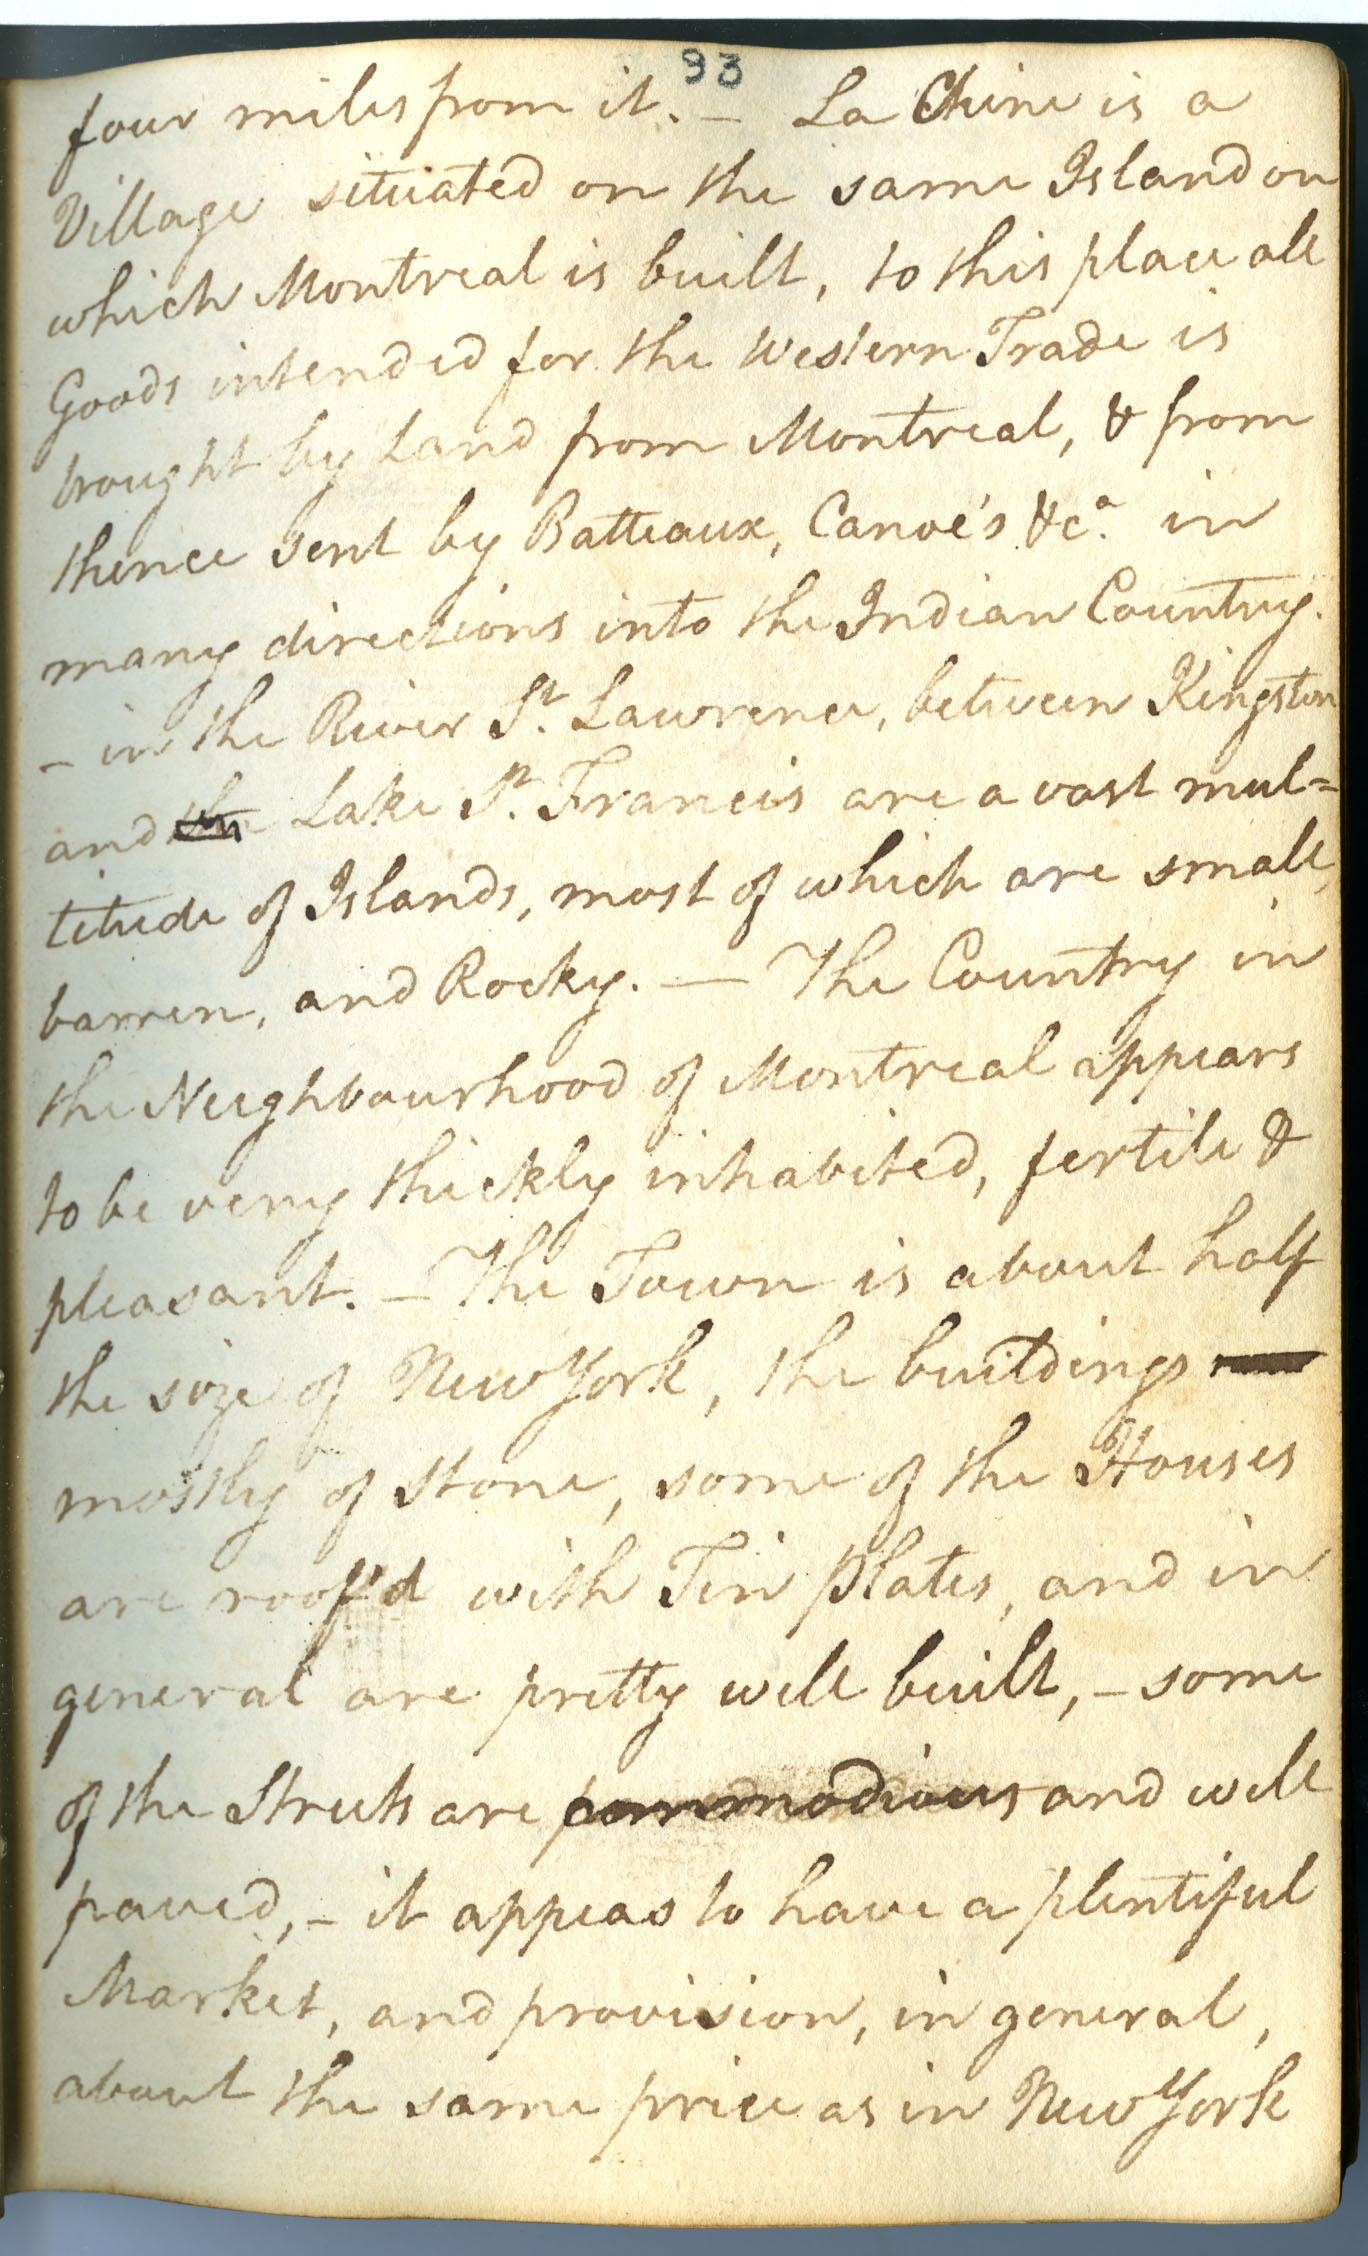 93
four miles from it. – La Chine is a
Village situated on the same Island on
which Montreal is built, to this place all
Goods intended for the Western Trade is
brought by Land from Montreal, & from
thence sent by Batteaux, Canoe's &c.a in
many directions into the Indian Country.
– in the River St. Lawrence, between Kingston
and the Lake St. Francis are a vast mul=
titude of Islands, most of which are small,
barren, and Rocky. — The Country in
the Neighbourhood of Montreal appears
to be very thickly inhabited, fertile &
pleasant. – The Town is about half
the size of New York, the buildings
mostly of Stone, some of the Houses
are roof'd with Tin Plates, and in
general are pretty well built, – some
of the Streets are commodious and well
paved, – it appeas to have a plentiful
Market, and provision, in general,
about the same price as in New York